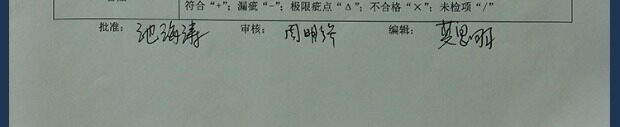 符合“+”；漏疵“-”；极限疵点“Δ”；不合格“×”；未检项“/”
批准：池海涛 审核：周明 编辑：莫思明